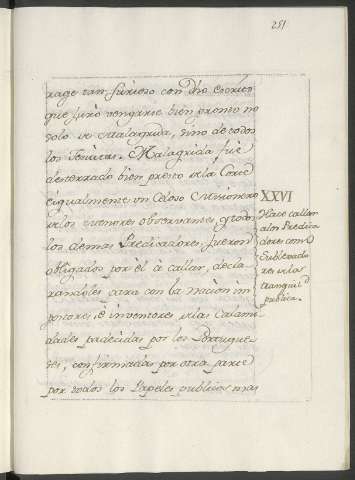 251
rage tan furioso con dho escrito
que juró vengarse bien pronto no
solo de Malagrida, sino de todos
los Jesuitas. Malagrida fué
desterrado bien presto de la Corte
e igualmente un Celoso Misionero
de los menores observantes, y todos
los demas Predicadores, fueron
obligados por él à callar, decla
randoles para con la nacion im
postores, è inventores de las Calami
dades padecidas por los Portugue
ses, confirmadas por otra parte
por todos los Papeles publicos mas
XXVI
Hace callar
a los Predica
dores como
Sublevado
res de la
tranquid
publica.